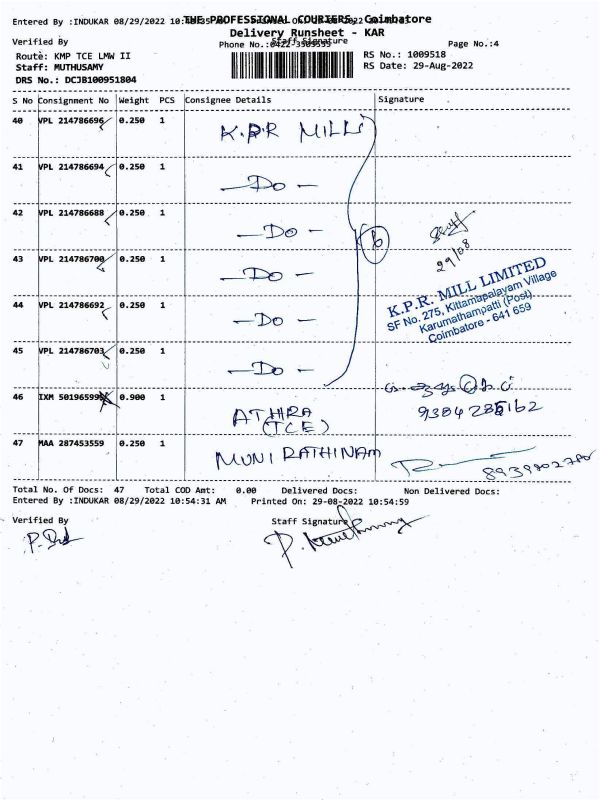 Entered By :INDUKAR 08/29/2022 10:
THE PROFESSIONAL COURIERS, Coimbatore
Delivery Runsheet - KAR
Verified By
Staff Signature
Phone No.:0422-3509555
Page No.:4
Route: KMP TCE LMW II
RS No.: 1009518
Staff: MUTHUSAMY
RS Date: 29-Aug-2022
DRS No.: DCJB100951804
S No Consignment No Weight PCS Consignee Details Signature
40 VPL 214786696 0.250 1 K.P.R MILL
41 VPL 214786694 0.250 1 —Do—
42 VPL 214786688 0.250 1 —Do—
6
29/08
43 VPL 214786700 0.250 1 —Do—
K.P.R. MILL LIMITED
SF No. 275, Kittampalayam Village
Karumathampatti (Post)
Coimbatore - 641 659
44 VPL 214786692 0.250 1 —Do—
45 VPL 214786703 0.250 1 —Do—
46 IXM 0.900 1 ATHIRA
(TCE)
47 MAA 287453559 0.250 1 MUNIRATHINAM
Total No. Of Docs: 47 Total COD Amt: 0.00 Delivered Docs: Non Delivered Docs:
Entered By :INDUKAR 08/29/2022 10:54:31 AM Printed On: 29-08-2022 10:54:59
Verified By Staff Signature